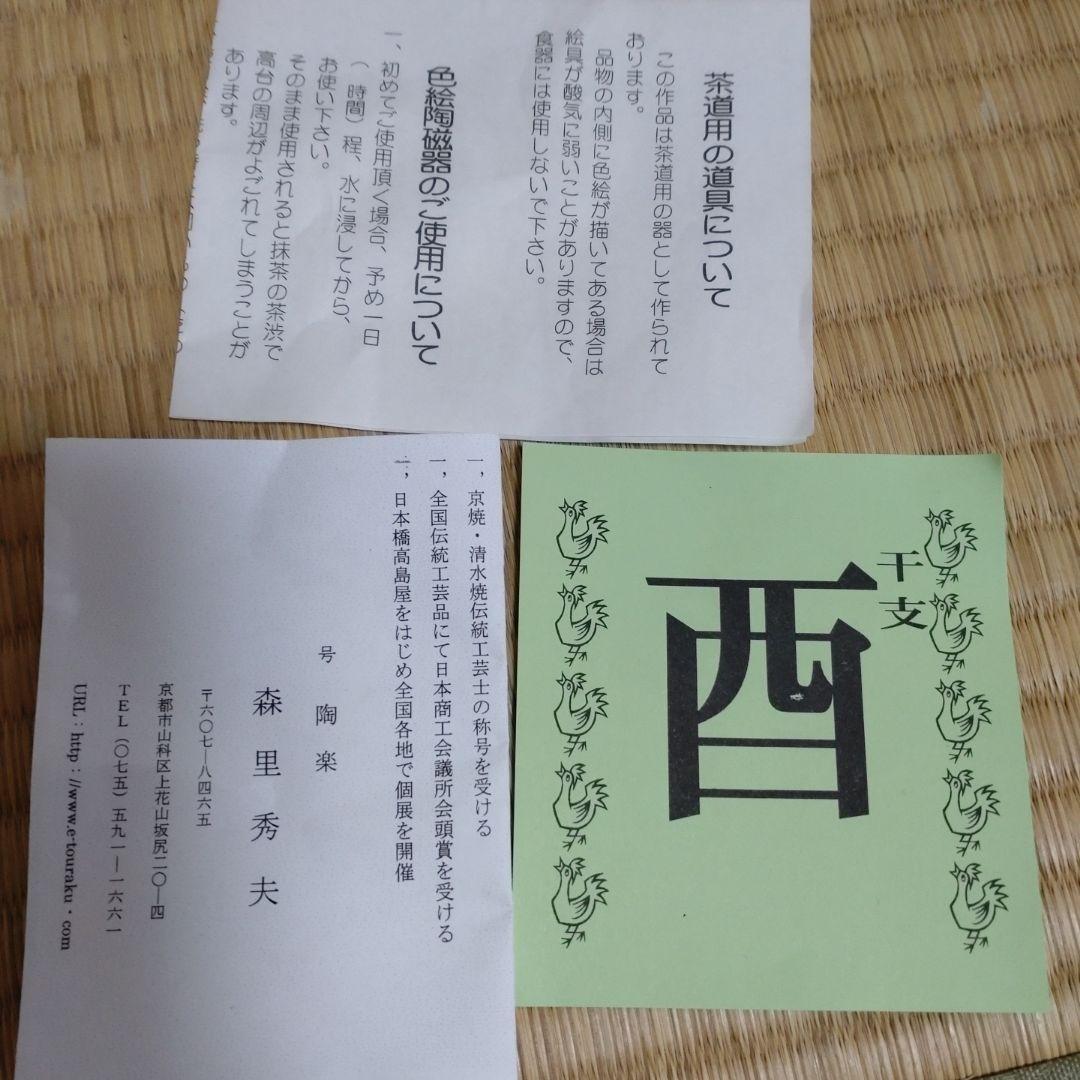 茶道用の道具について
この作品は茶道用の器として作られて
おります。
品物の内側に色絵が描いてある場合は
絵具が酸気に弱いことがありますので、
食器には使用しないで下さい。
色絵陶磁器のご使用について
一、初めてご使用頂く場合、予め一日
(時間)程、水に浸してから、
お使い下さい。
そのまま使用されると抹茶の茶渋で
高台の周辺がよごれてしまうことが
あります。
一，京焼・清水焼伝統工芸士の称号を受ける
一，全国伝統工芸品にて日本商工会議所会頭賞を受ける
一，日本橋高島屋をはじめ全国各地で個展を開催
号 陶楽
森里秀夫
〒六〇七―八四六五
京都市山科区上花山坂尻二〇―四
TEL(〇七五)五九一―一六六一
URL:http://www.e-touraku.com
干支
酉